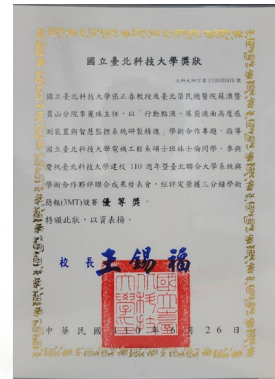 國立臺北科技大學獎狀
國立臺北科技大學張正春教授及臺北榮民總醫院蘇澳暨
員山分院李麗珠主任,以「行動點滴、尿袋液面高度感
測裝置與智慧監控系統研製精進」學術合作專題,指導
國立臺北科技大學電機工程系碩士班林士倫同學,參與
慶祝臺北科技大學建校 110 週年暨臺北聯合大學系統與
學術合作夥伴聯合成果發表會,經評定榮獲三分鐘學術
簡報(3MT)競賽 優等獎。
特頒此狀,以資表揚。
校長 王錫福
中華民國 年 6 月 26 日